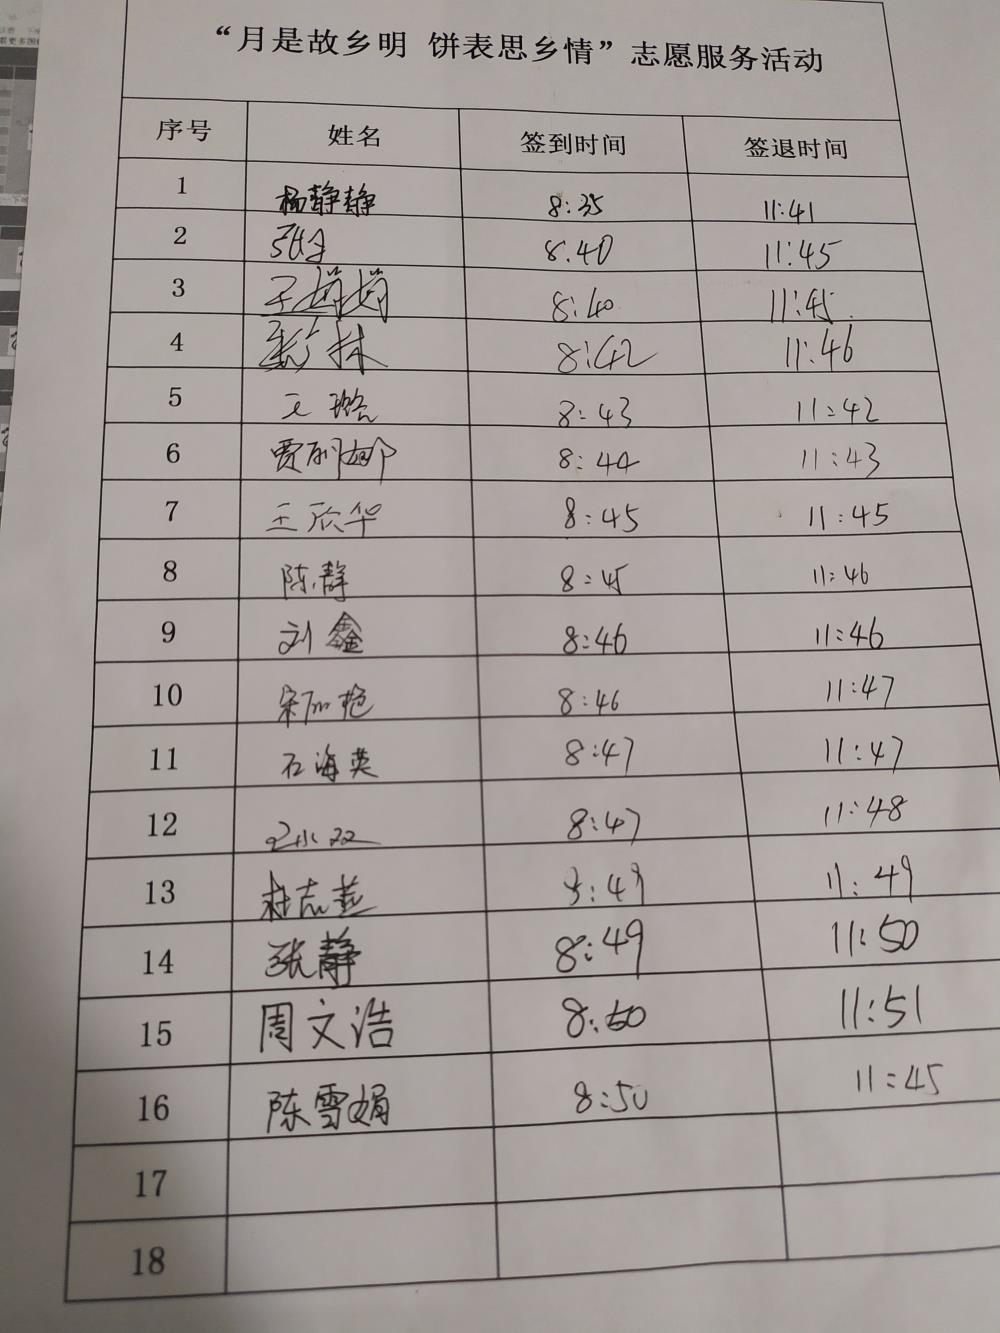 “月是故乡明 饼表思乡情”志愿服务活动
序号 姓名 签到时间 签退时间
1 杨静静 8:35 11:41
2 8.40 11:45
3 王娟娟 8:40 11:45
4 8:42 11:46
5 王璐 8:43 11:42
6 贾丽娜 8:44 11:43
7 王欣华 8:45 11:45
8 陈静 8:45 11:46
9 刘鑫 8:46 11:46
10 宋丽艳 8:46 11:47
11 石海英 8:47 11:47
12 8:47 11:48
13 杜志燕 11:49
14 张静 8:49 11:50
15 周文浩 8:50 11:51
16 陈雪娟 8:50 11:45
17
18